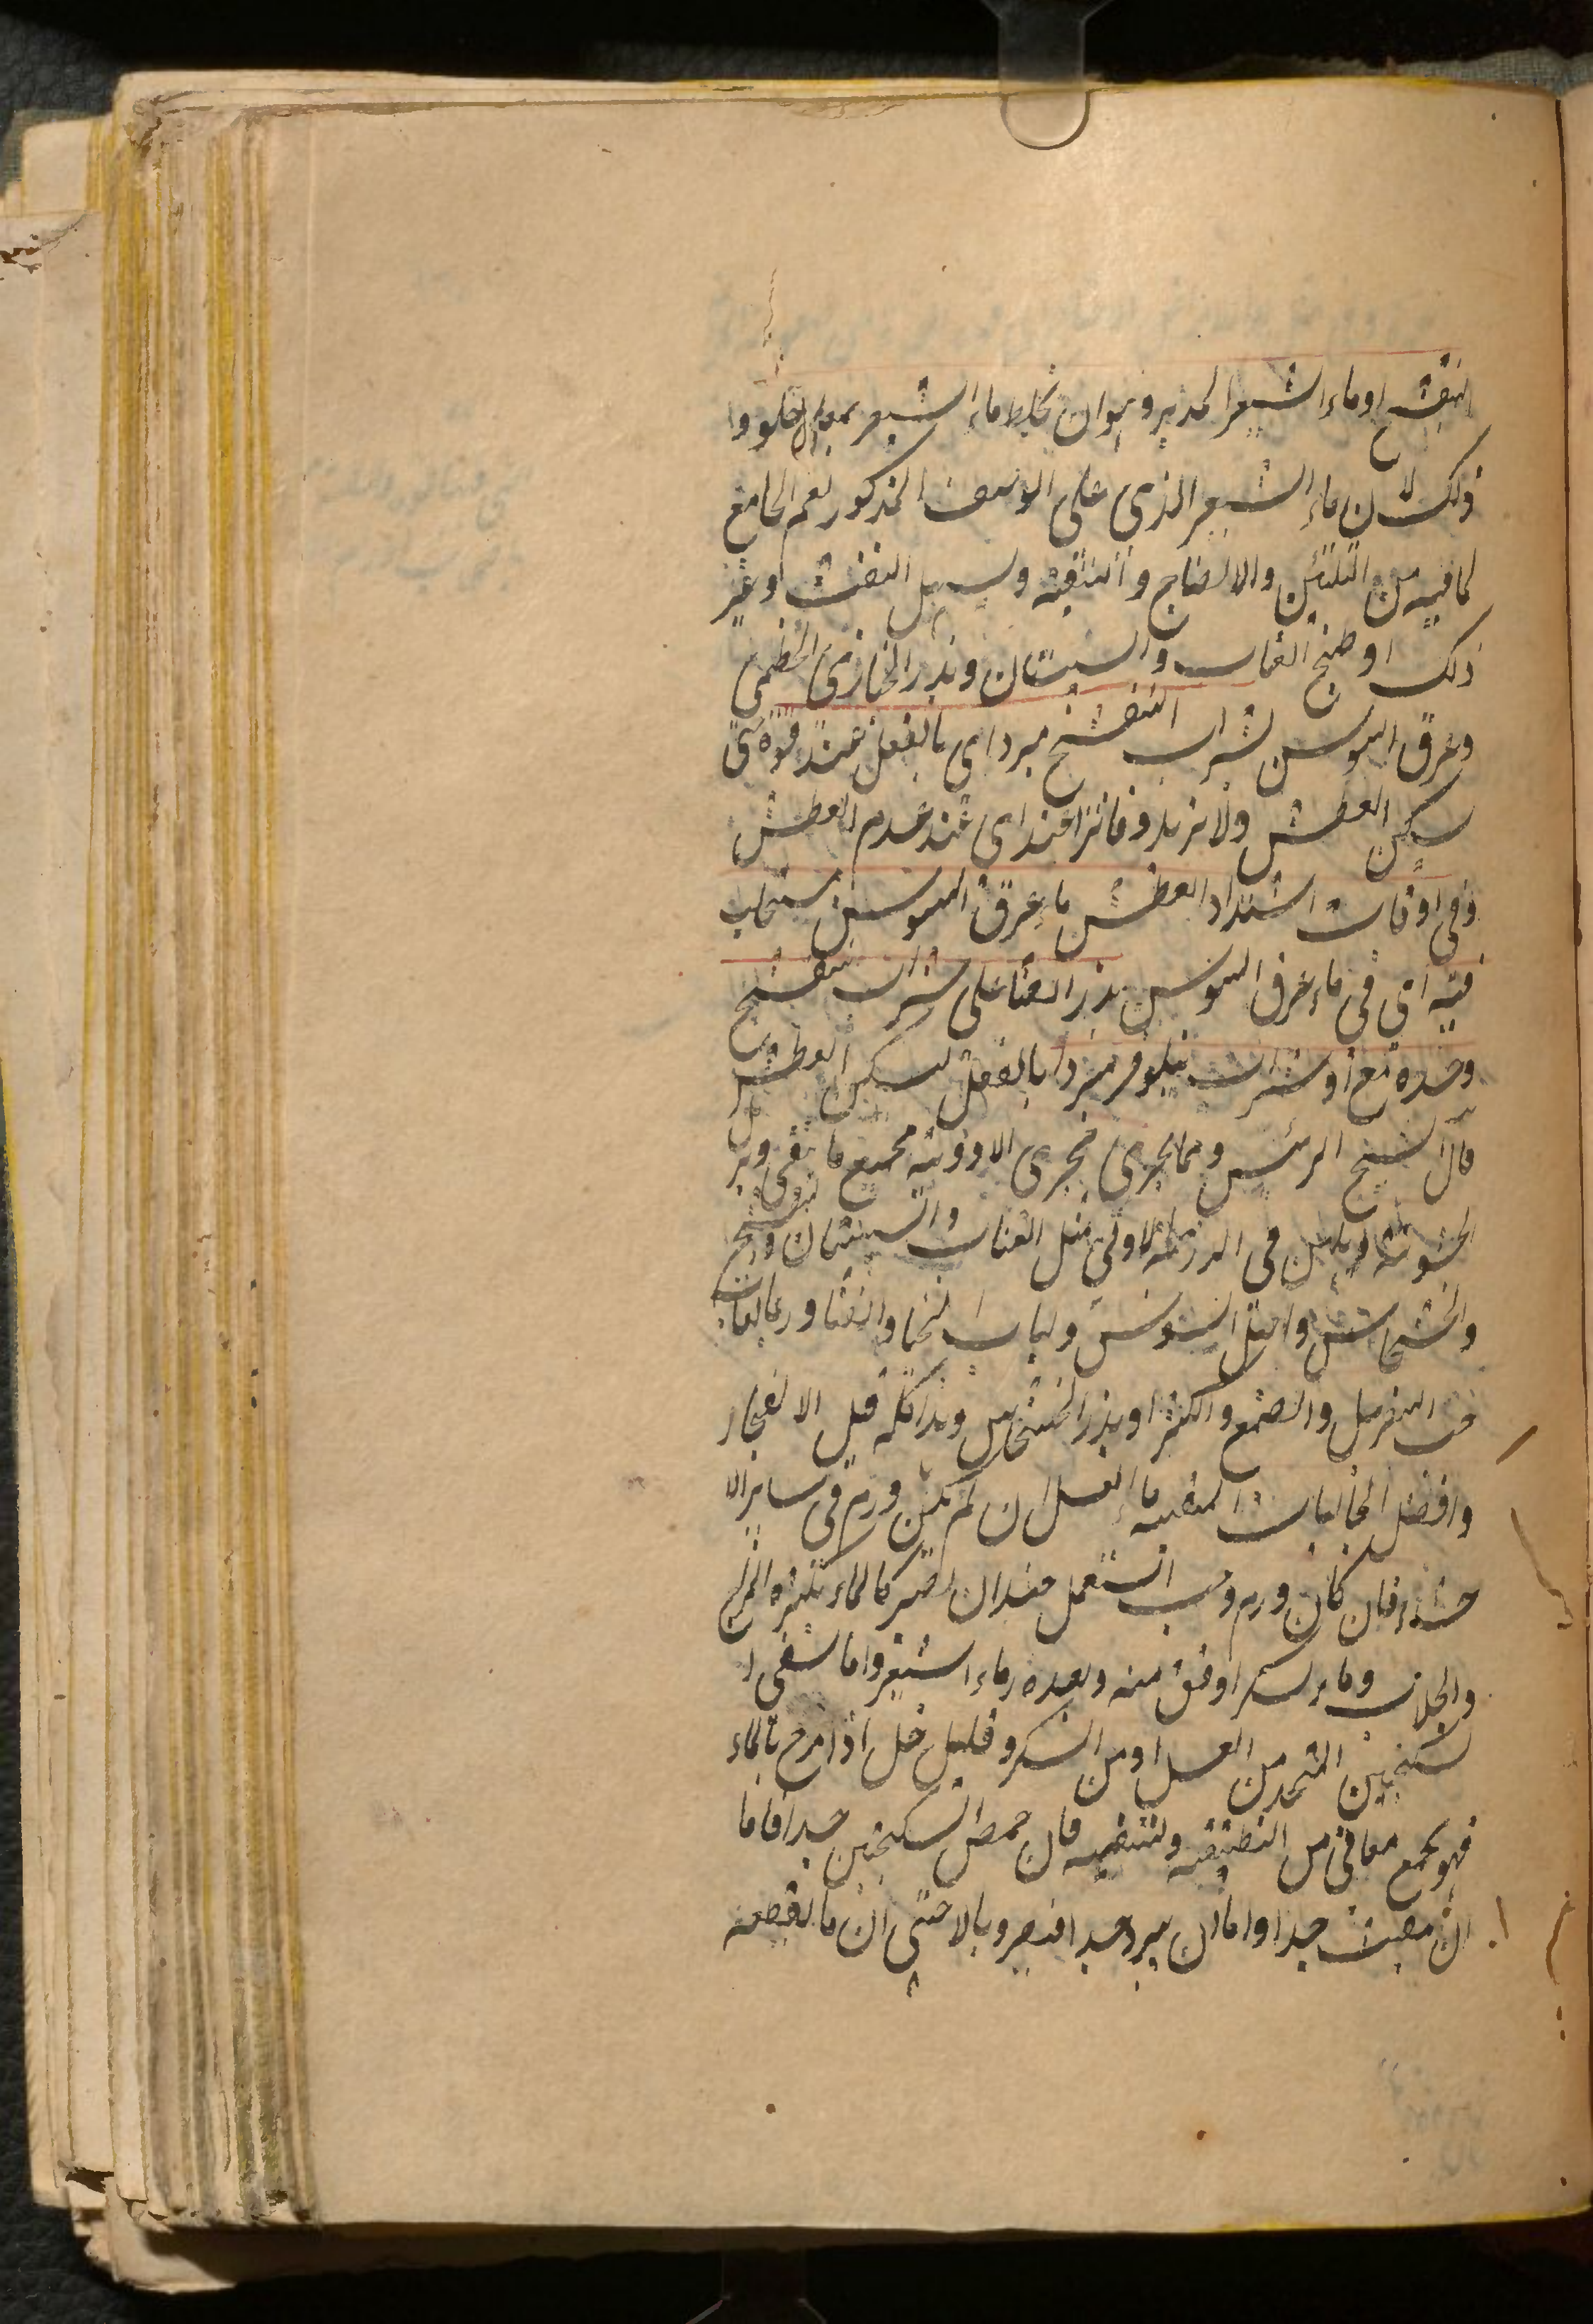 البنفسج او ماء الشعير المدبر وهو ان يخلط ماء الشعير بماء الحلو و
ذلك لان ماء الشعير الذى على الوصف المذكور نعم الجامع
لما فيه من التليين والانضاج والتنقية وتسهيل النفث وغير
ذلك او طبيخ العناب والسبستان وبذر الخبازى الخطمى
وعرق السوس بشراب البنفسج مبردا اى بالفعل عند قوة حمى
يسكن العطش ولا يزيد وفاترا عند اى عند عدم العطش
وفى اوقات اشتداد العطش ماء عرق السوس يستحلب
فيه اى فى ماء عرق السوس بذر القثا على شراب بنفسج
وحده مع او شراب نيلوفر مبردا بالفعل ليسكن العطش
قال الشيخ الرئيس ومما يجرى مجرى الادوية جميع ما ينقى ويزيل
الخشونة ويلين فى الدرجة الاولى مثل العناب والسبستان وبنفسج
والخشخاش واصل السوس ولباب الخيار والقثا ولعابات
حب السفرجل والصمغ والكثيرا وبذر الخشخاش وهذا كله قبل الانفجار
وافضل الجاليات المنقية ماء العسل ان لم يكن ورم فى ساير الا
حشاء فان كان ورم وجب استعمل عند ان يصير كالماء بكثرة المزج
والجلاب وماء السكر اوفق منه وبعده ماء الشعير واما سقى ا
لسكنجبين المتخذ من العسل او من السكر وقليل خل اذا مزج بالماء
فهو يجمع معانى من التطفية والتنقية فان حمض السكنجبين جدا فاما
ان نفث جدا واما ان يبرد جدا فيضر وبالا حتى ان ما يقطعه